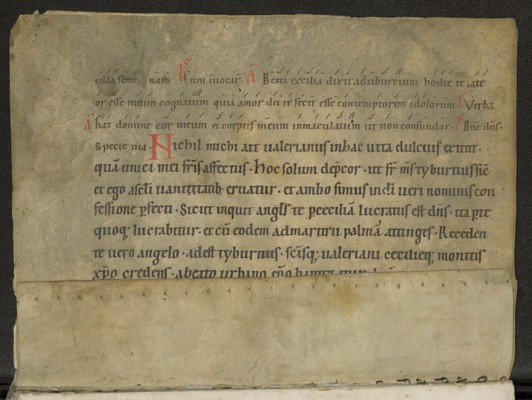 cilia semp nasti P um invocat. A Beata cecilia dixit ad tiburcium hodie te fate
or esse meum cognatum quia amor dei te fecit esse contemptorem idolorum. V Verba
A Fiat domine cor meum et corpus meum inmaculatum ut non confundar. P Bn̄e dn̄s.
Specie tua. Nichil michi ait ualerianus in hac uita dulcius extitit.
quā unici mei fr̄is affectus. Hoc solum dep̄cor. ut fr̄ m̄s tyburtius sic̄
et ego a seculi uanitatib; eruatur. et ambo simus in dn̄i ueri nominis con
fessione p̄fecti. Sicut inquit angl̄s te p ceciliā lucratus est dn̄s. ita p te
quoq; lucrabitur. et cū eodem ad martirii palmā attinges. Receden
te uero angelo. adest tyburtius. sc̄isq; ualeriani cecilięq; monitis
xp̄o credens. a beato urbano